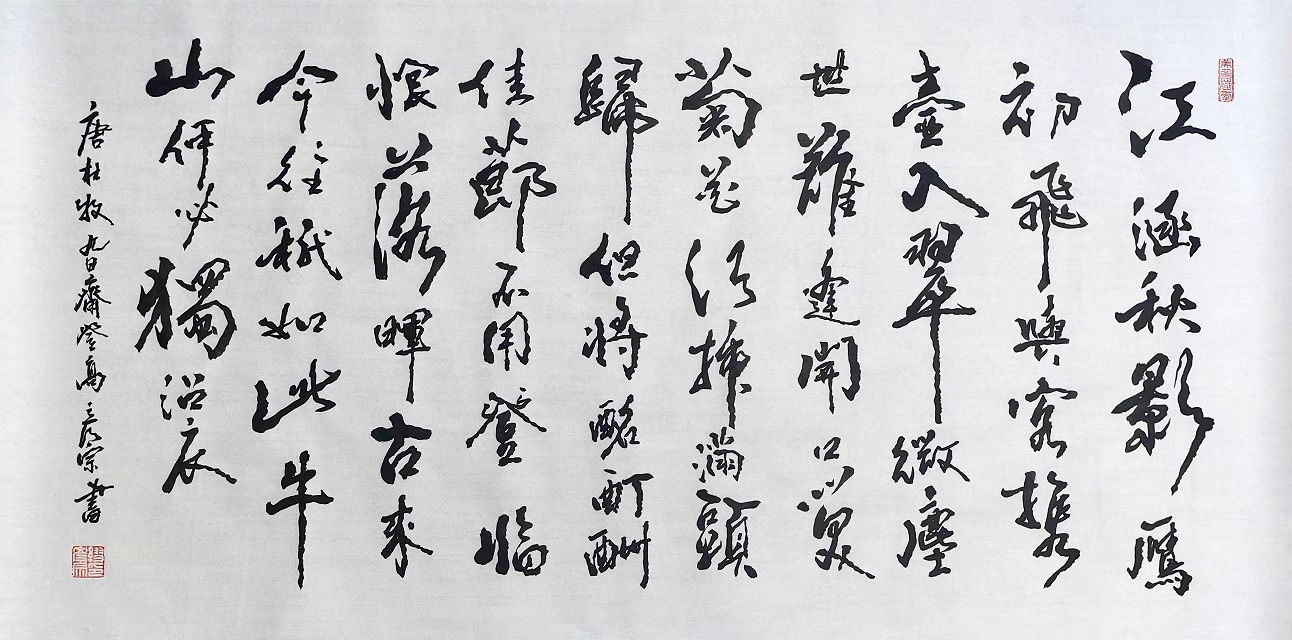 江涵秋影鴈
初飛與客携
壺入翠微塵
世難逢開口笑
菊花須插滿頭
歸但將酩酊酬
佳節不用登臨
恨落暉古來
今往秖如此牛
山何必獨沾衣
唐杜牧九日齊登高 彥宗書